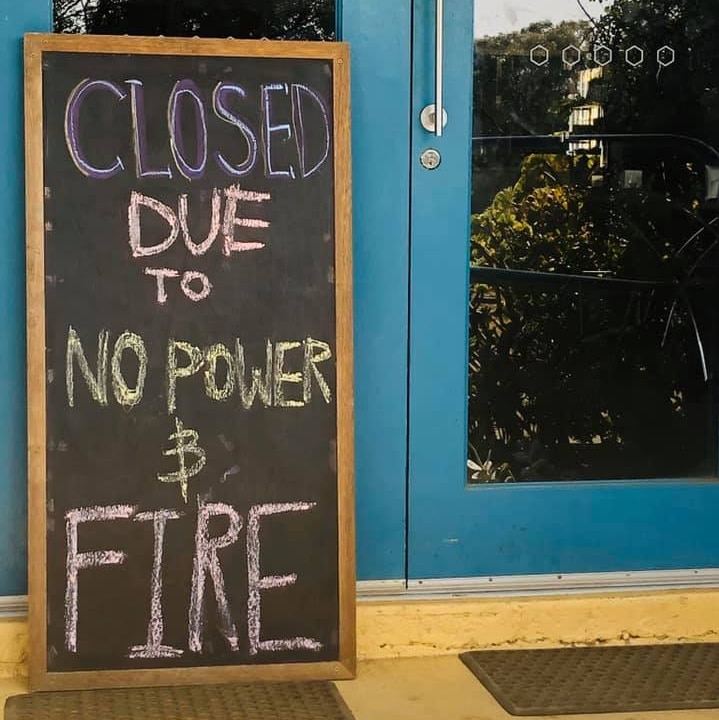 CLOSED
DUE
TO
NO POWER
&
FIRE